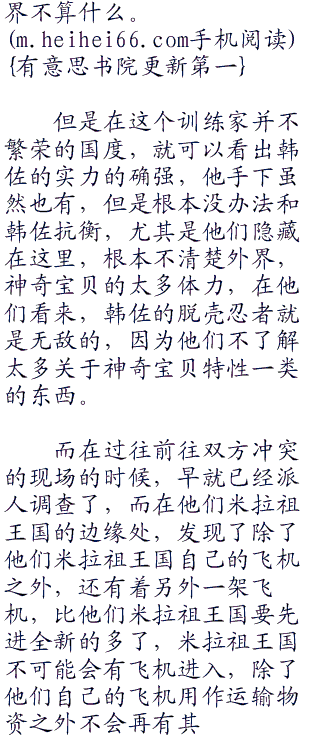 界不算什么。
(m.heihei66.com手机阅读)
{有意思书院更新第一}
但是在这个训练家并不
繁荣的国度，就可以看出韩
佐的实力的确强，他手下虽
然也有，但是根本没办法和
韩佐抗衡，尤其是他们隐藏
在这里，根本不清楚外界，
神奇宝贝的太多体力，在他
们看来，韩佐的脱壳忍者就
是无敌的，因为他们不了解
太多关于神奇宝贝特性一类
的东西。
而在过往前往双方冲突
的现场的时候，早就已经派
人调查了，而在他们米拉祖
王国的边缘处，发现了除了
他们米拉祖王国自己的飞机
之外，还有着另外一架飞
机，比他们米拉祖王国要先
进全新的多了，米拉祖王国
不可能会有飞机进入，除了
他们自己的飞机用作运输物
资之外不会再有其